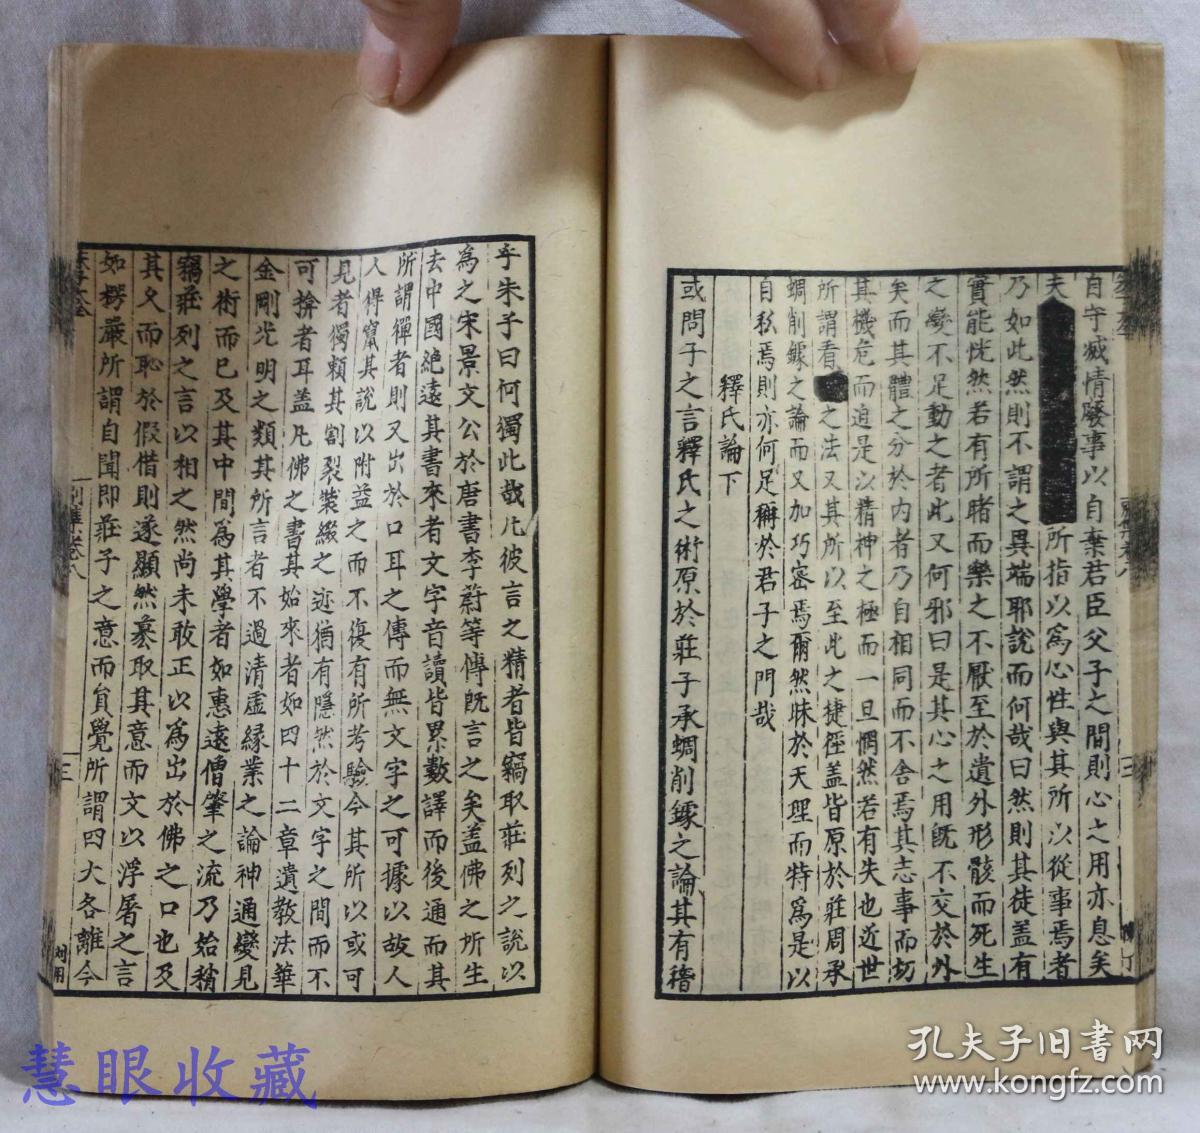 自守滅情廢事以自棄君臣父子之間則心之用亦息矣
夫所指以爲心性與其所以從事焉者
乃如此然則不謂之異端邪說而何哉曰然則其徒蓋有
實能恍然若有所睹而樂之不厭至於遺外形骸而死生
之變不足動之者此又何邪曰是其心之用旣不交於外
矣而其體之分於內者乃自相同而不舍焉其志專而切
其機危而迫是以精神之極而一旦惘然若有失也近世
所謂看之法又其所以至此之捷徑蓋皆原於莊周承
蜩削鐻之論而又加巧密焉爾然昧於天理而特爲是以
自私焉則亦何足稱於君子之門哉
釋氏論下
或問子之言釋氏之術原於莊子承蜩削鐻之論其有稽
乎朱子曰何獨此哉凡彼言之精者皆竊取莊列之說以
爲之宋景文公於唐書李蔚等傳旣言之矣蓋佛之所生
去中國絕遠其書來者文字音讀皆累數譯而後通而其
所謂禪者則又出於口耳之傳而無文字之可據以故人
人得竄其說以附益之而不復有所考驗今其所以或可
見者獨賴其割裂裝綴之迹猶有隱然於文字之間而不
可揜者耳蓋凡佛之書其始來者如四十二章遺敎法華
金剛光明之類其所言者不過清虛緣業之論神通變見
之術而已及其中間爲其學者如惠遠僧肇之流乃始稍
竊莊列之言以相之然尚未敢正以爲出於佛之口也及
其久而恥於假借則遂顯然篡取其意而文以浮屠之言
如楞嚴所謂自聞即莊子之意而圓覺所謂四大各離今
別集卷八
三
刘用
慧眼收藏
孔夫子旧书网
www.kongfz.com